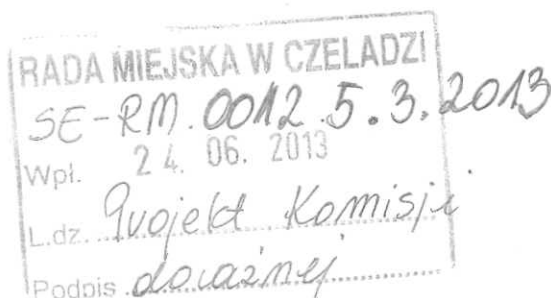 RADA MIEJSKA W CZELADZI
SE-RM.0012.5.3.2013
Wpł. 24. 06. 2013
L.dz. Projekt Komisji
Podpis doraźnej